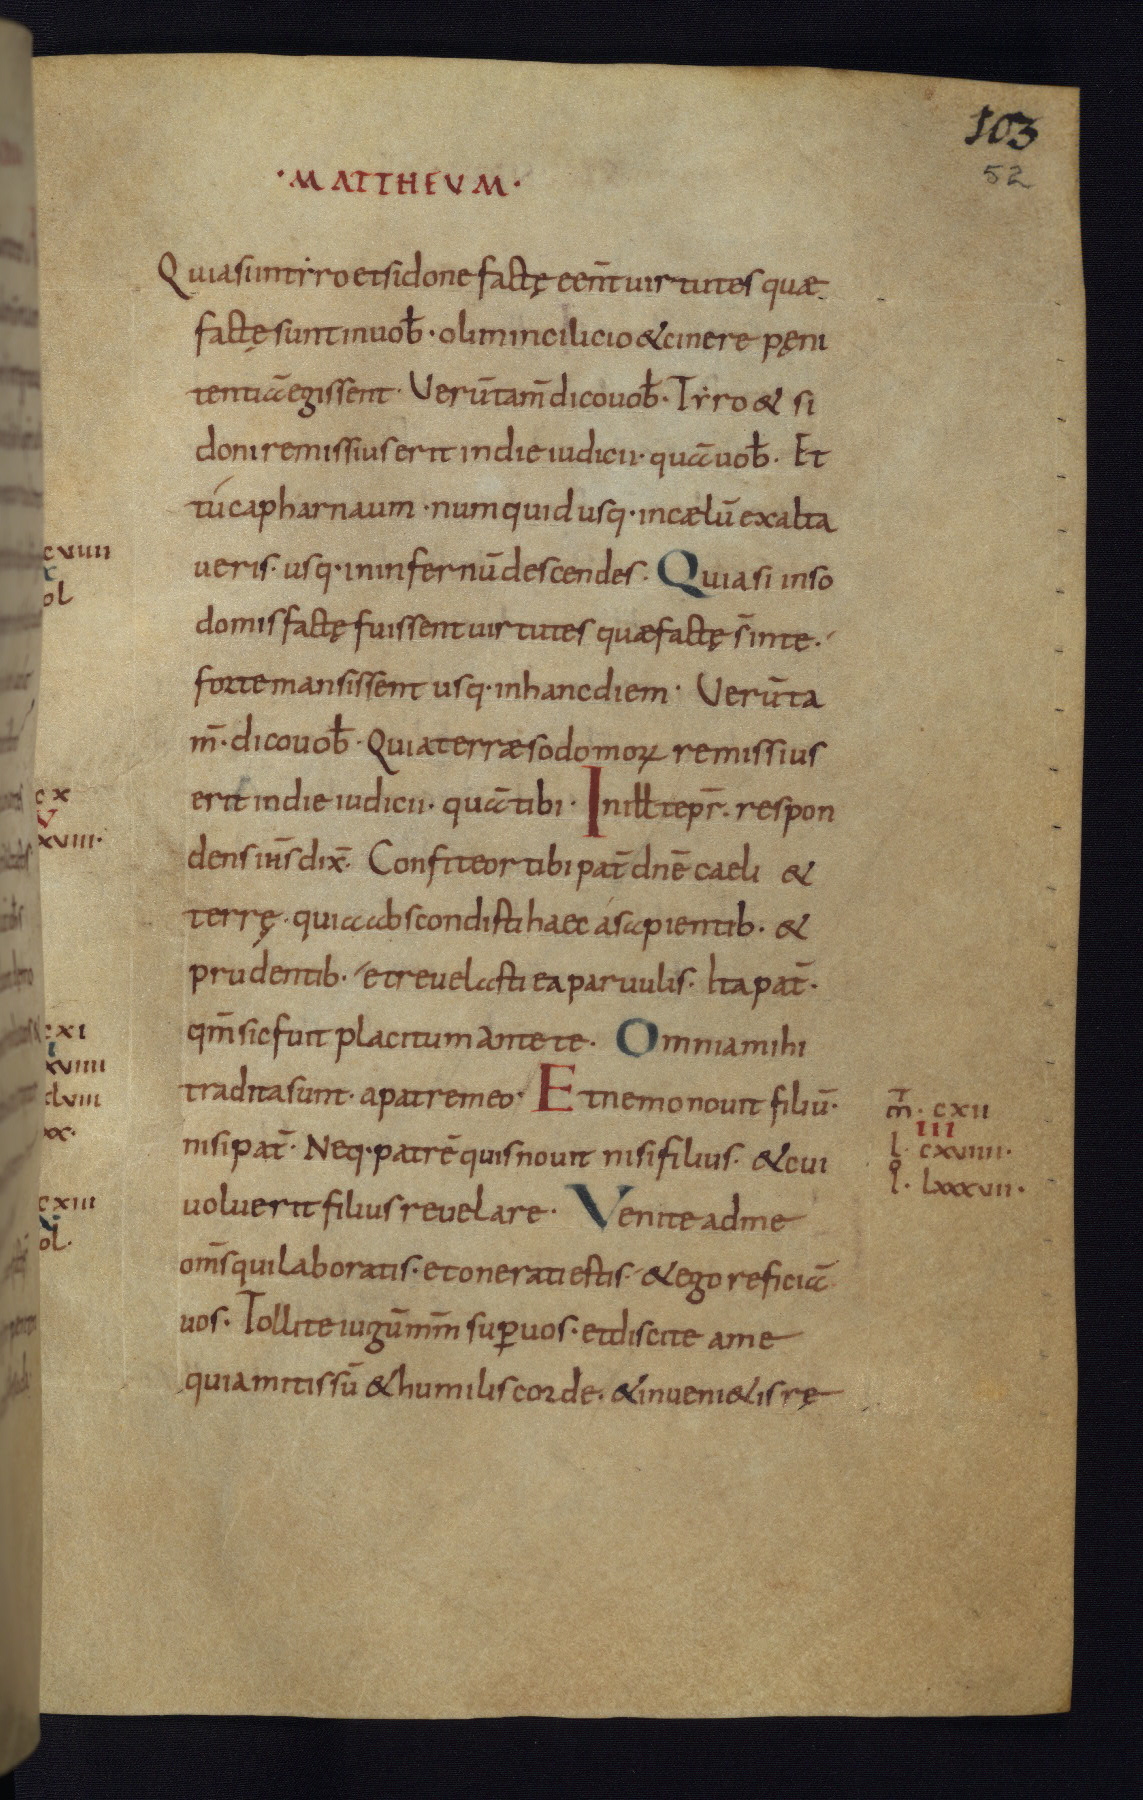 103
52
·MATTHEUM·
Quia si in tẏro et sidone factę eēnt uirtutes quæ
factę sunt in uob̄· olim in cilicio & cinere pęni
tentiā egissent· Uerūtam̄ dico uob̄· Tẏro & si
doni remissius erit in die iudicii· quā uob̄· Et
tú capharnaum· numquid usq· in cælū exalta
ueris· usq· in infernū descendes· Quia si in so
domis factę fuissent uirtutes quæ factę s̄ in te·
forte mansissent usq· in hanc diem· Uerūta
m̄· dico uob̄· Quia terræ sodomoꝝ remissius
erit in die iudicii· quā tibi· In ill̄ tepr̄· respon
dens iħs dix̄· Confiteor tibi pat̄ dn̄e caeli &
terrę· quia abscondisti haec a sapientib· &
prudentib· et reuelasti ea paruulis· Ita pat̄·
qm̄ sic fuit placitum ante te· Omnia mihi
tradita sunt· a patre meo· Et nemo nouit filiū·
nisi pat̄· Neq· patrē quis nouit nisi filius· & cui
uoluerit filius reuelare· Venite ad me
om̄s qui laboratis· et onerati estis· & ego reficiā
uos· Tollite iugū m̄m suꝑ uos· et discite a me
quia mitis sū & humilis corde· & inueni&is rę
cviiii
x
ol
cx
v
xviii·
cxi
xviiii
clviii
xx·
cxiii
x
ol·
m̄· cxii
iii
l· cxviiii·
l· lxxxvii·